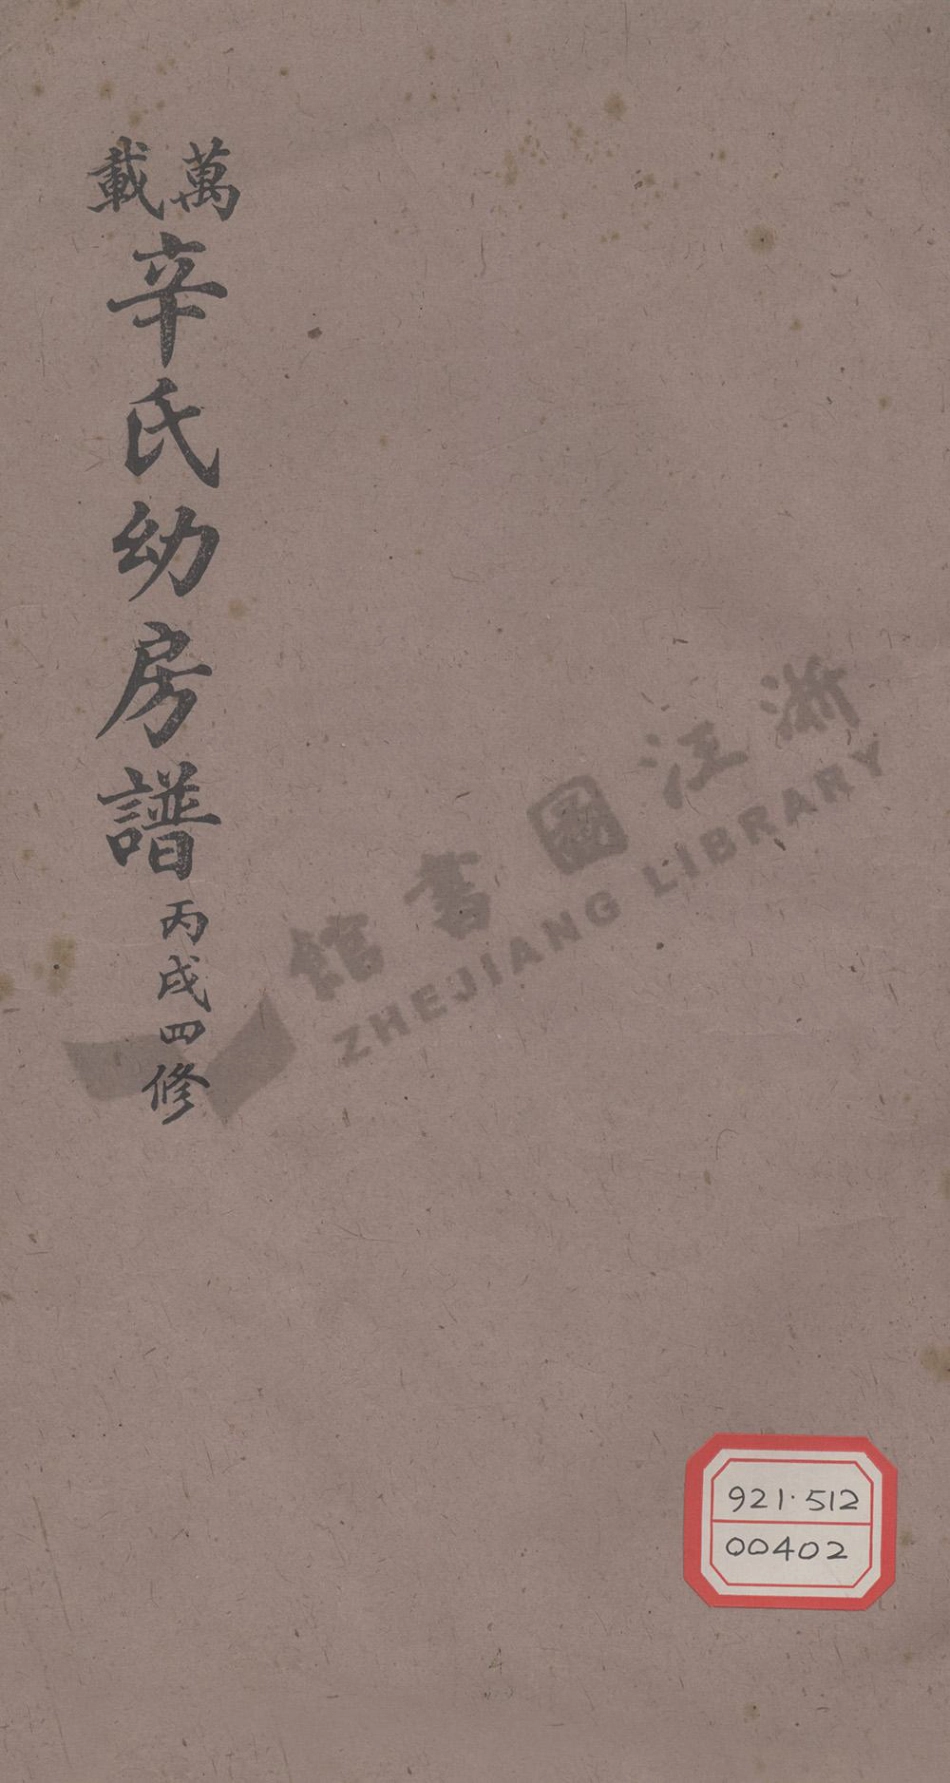 萬載
辛氏幼房譜
丙戌四修
浙江圖書館
ZHEJIANG LIBRARY
921·512
00402